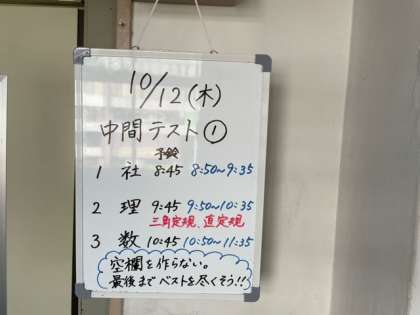 10/12(木)
中間テスト①
予鈴
1 社 8:45 8:50~9:35
2 理 9:45 9:50~10:35
三角定規、直定規
3 数 10:45 10:50~11:35
空欄を作らない。
最後までベストを尽くそう!!